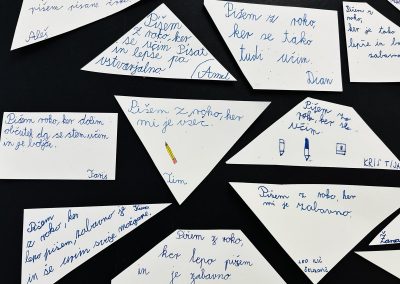 pišem pisane
Aleš
Pišem
z roko, ker
se učim pisat
in lepše pa
ustvarjalno
Pišem z roko
ker se tako
tudi učim.
Dian
Pišem z
roko,
ker je tako
lepše in
zabavno
Pišem roko, ker dobim
občutek da se sten učim
in je bolje.
Pišem z roko, ker
mi je všeč
Tim
Pišem
z roko, ker se
učim.
KRISTIJA
Pišem
z roko, ker
lepo pišem, zabavno
in še urim svoje možgane.
Pišem z roko,
ker lepo pišem
in je zabavno
Pišem z roko, ker
mi je zabavno.
Žana